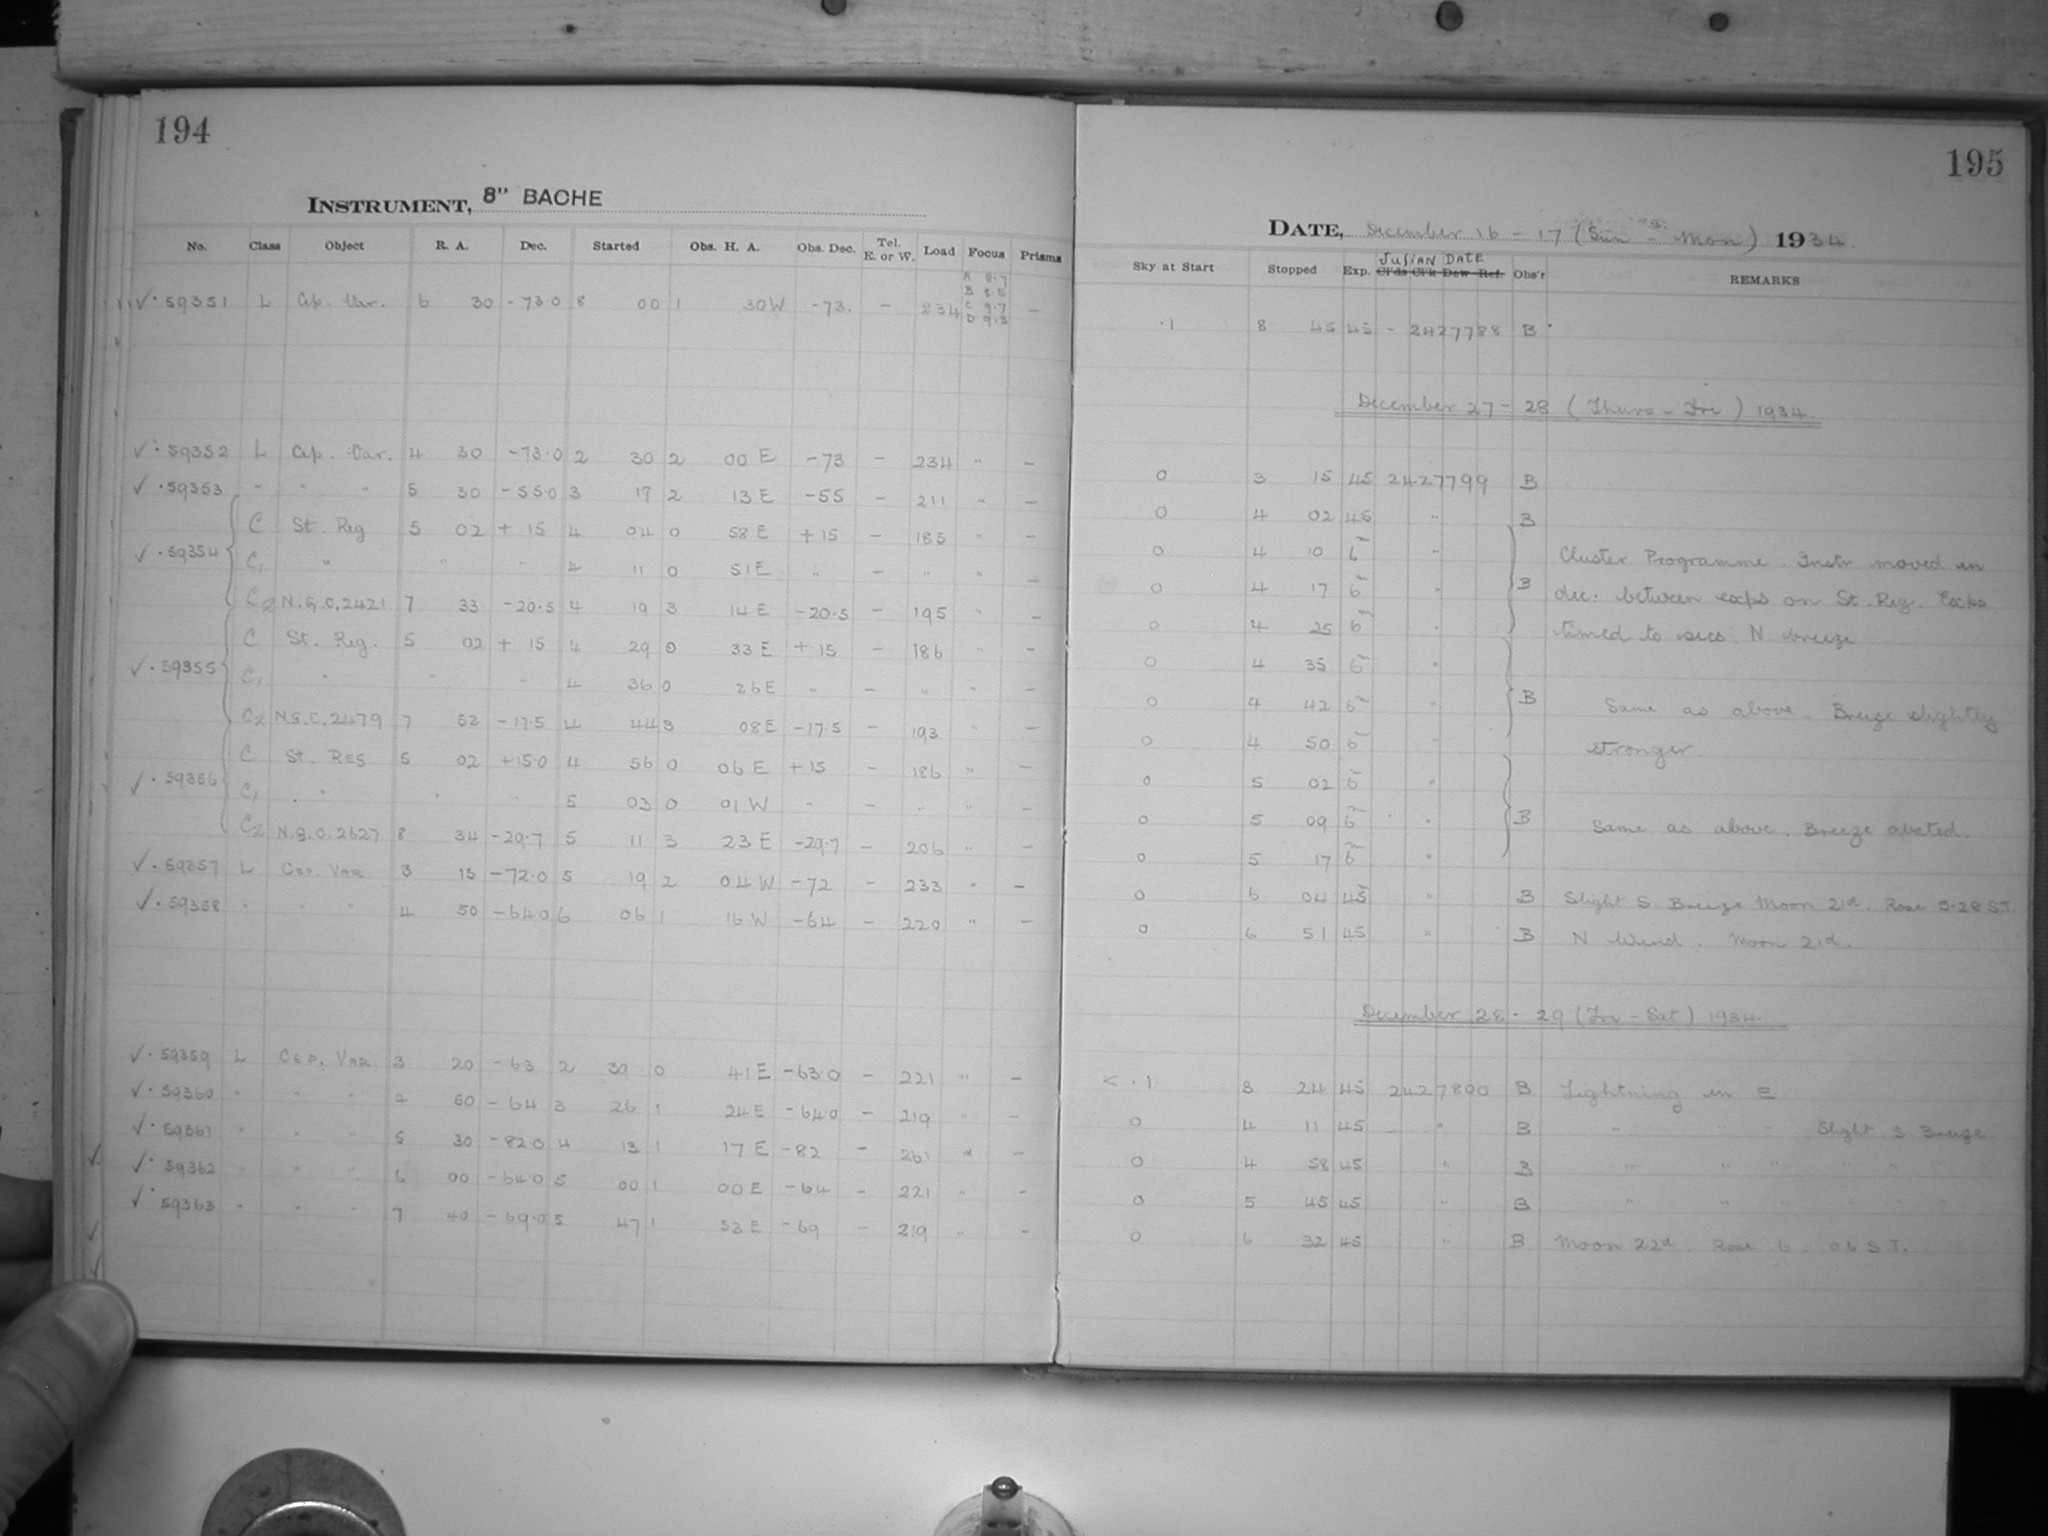 194
INSTRUMENT, 8" BACHE
No. Class Object R. A. Dec. Started Obs. H. A. Obs. Dec. Tel. E. or W. Load Focus Prisms
✓ · 59351 L Cep. Var. 6 30 -73.0 8 00 1 30 W -73. - 234 A 8.7 B 8.5 C 9.7 D 9.3 -
✓ · 59352 L Cep. Var. 4 30 -73.0 2 30 2 00 E -73 - 234 " -
✓ · 59353 " " " 5 30 -55.0 3 17 2 13 E -55 - 211 " -
C St. Reg 5 02 + 15 4 04 0 58 E +15 - 185 " -
✓ · 59354 C1 " " " 4 11 0 51 E " - " " -
C2 N.G.C. 2421 7 33 -20.5 4 19 3 14 E -20.5 - 195 " -
C St. Reg. 5 02 + 15 4 29 0 33 E +15 - 186 " -
✓ · 59355 C1 " " " 4 36 0 26 E " - " " -
C2 N.G.C. 2479 7 52 -17.5 4 44 3 08 E -17.5 - 193 " -
C St. Reg 5 02 +15.0 4 56 0 06 E +15 - 186 " -
✓ · 59356 C1 " " " 5 03 0 01 W " - " " -
C2 N.G.C. 2627 8 34 -29.7 5 11 3 23 E -29.7 - 206 " -
✓ · 59357 L CEP. VAR 3 15 -72.0 5 19 2 04 W -72 - 233 " -
✓ · 59358 " " " 4 50 -64.0 6 06 1 16 W -64 - 220 " -
✓ · 59359 L CEP. VAR 3 20 -63 2 39 0 41 E -63.0 - 221 " -
✓ · 59360 " " " 4 50 -64 3 26 1 24 E -64.0 - 219 " -
✓ · 59361 " " " 5 30 -82.0 4 13 1 17 E -82 - 261 " -
✓ · 59362 " " " 6 00 -64.0 5 00 1 00 E -64 - 221 " -
✓ · 59363 " " " 7 40 -69.0 5 47 1 53 E -69 - 219 " -
195
DATE, December 16 - 17 (Sun - Mon) 1934.
Sky at Start Stopped Exp. JULIAN DATE Cl'ds Cl'k Dew Ref. Obs'r REMARKS
.1 8 45 45 - 2427788 B
December 27 - 28 (Thurs - Fri) 1934.
0 3 15 45 2427799 B
0 4 02 45 " B
0 4 10 6m " Cluster Programme. Instr moved in
0 4 17 6m " B dec. between exps on St. Reg. Exps
0 4 25 6m " timed to secs N breeze
0 4 35 6m "
0 4 42 6m " B Same as above. Breeze slightly
0 4 50 6m " stronger.
0 5 02 6m "
0 5 09 6m " B Same as above. Breeze abated.
0 5 17 6m "
0 6 04 45 " B Slight S. Breeze Moon 21d. Rose 5-28 S.T.
0 6 51 45 " B N Wind. Moon 21d.
December 28 - 29 (Fri - Sat) 1934
< .1 3 24 45 2427800 B Lightning in E
0 4 11 45 " B " " " Slight S. Breeze
0 4 58 45 " B " " " " " "
0 5 45 45 " B " " " " " "
0 6 32 45 " B Moon 22d. Rose 6.06 S.T.